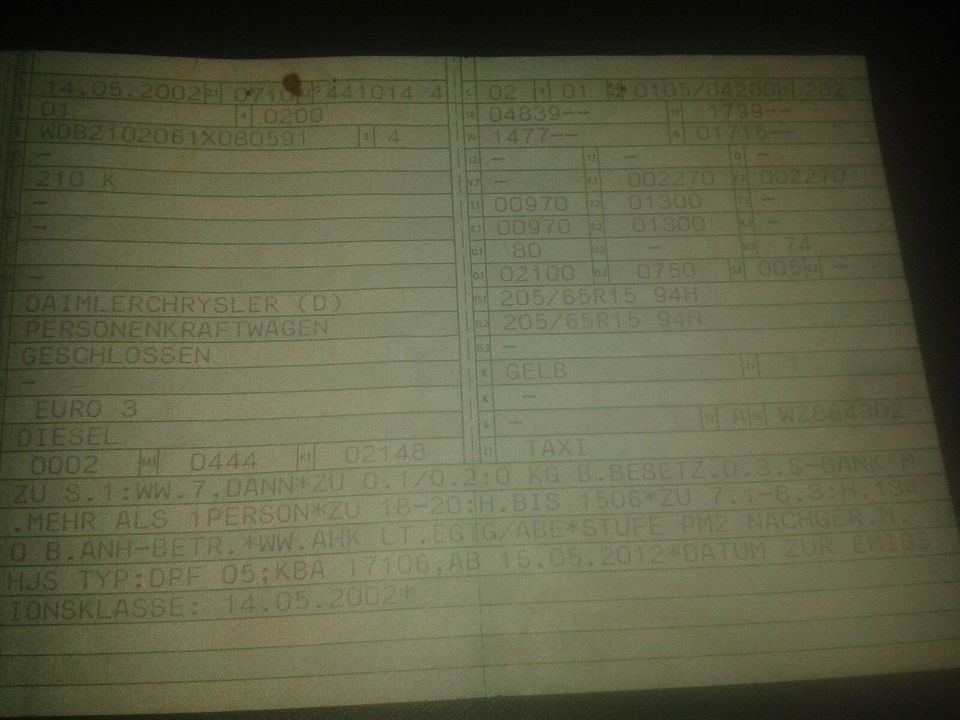 14.05.2002 2.1 0710 441014 4
01 4 0200
WDB2102061X080591 3 4
-
210 K
-
-
-
DAIMLERCHRYSLER (D)
PERSONENKRAFTWAGEN
GESCHLOSSEN
-
EURO 3
DIESEL
0002 0444 P.1 02148
L 02 9 01 0105/04200 202
18 04839-- 19 1799--
20 1477-- G 01715--
12 - 13 - Q -
V.7 - F.1 002270 F.2 002270
7.1 00970 7.2 01300 7.3 -
8.1 00970 8.2 01300 8.3 -
U.1 80 U.2 - U.3 74
O.1 02100 O.2 0750 S.1 005 S.2 -
15.1 205/65R15 94H
15.2 205/65R15 94H
15.3 -
R GELB 11
K -
6 - 17 A 16 WZ864802
21 TAXI
ZU S.1:WW.7,DANN*ZU O.1/O.2:0 KG B.BESETZ.D.3.S-BANK M
.MEHR ALS 1PERSON*ZU 18-20:H.BIS 1506*ZU 7.1-8.3:H.134
0 B.ANH-BETR.*WW.AHK LT.EGTG/ABE*STUFE PM2 NACHGER.M.
HJS TYP:DPF 05;KBA 17106,AB 15.05.2012*DATUM ZUR EMISS
IONSKLASSE: 14.05.2002*